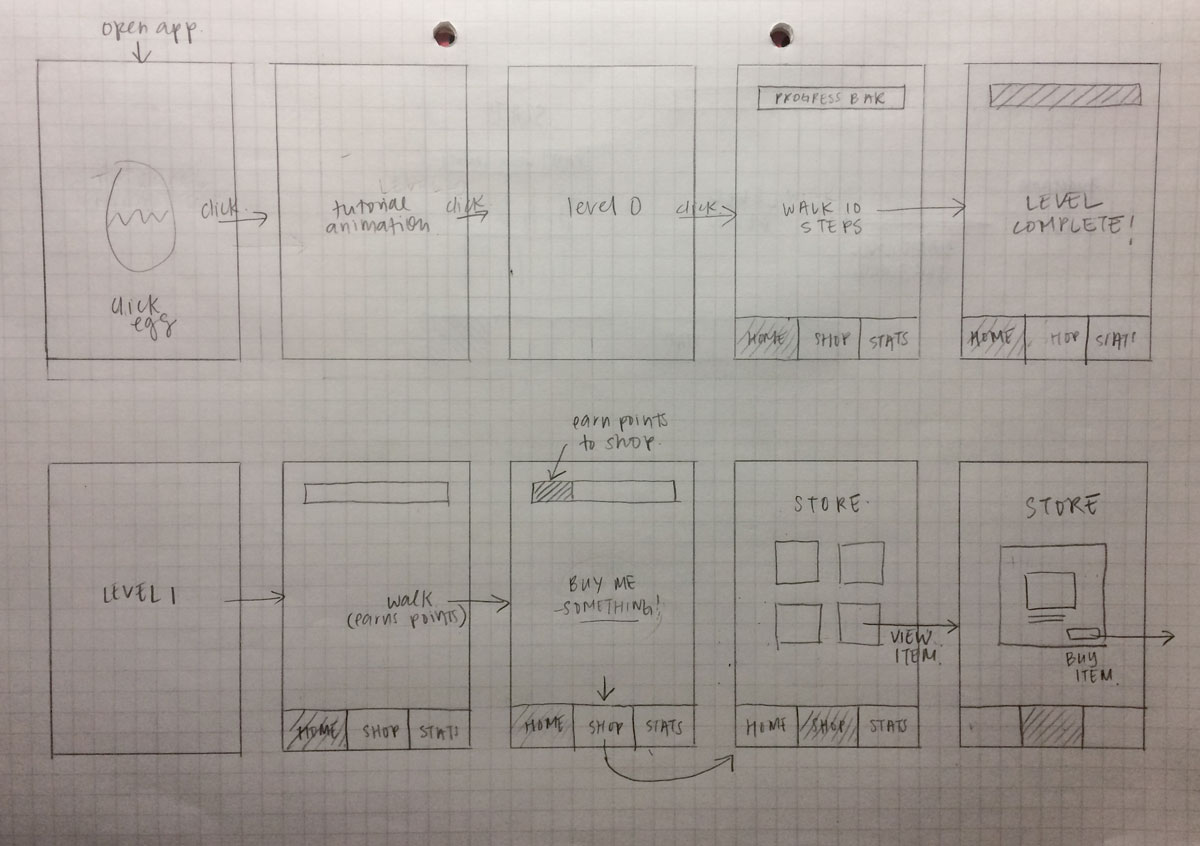 open app.
click
egg
click
tutorial
animation
click
level 0
click
PROGRESS BAR
WALK 10
STEPS
HOME
SHOP
STATS
LEVEL
COMPLETE!
HOME
HOP
STATS
LEVEL 1
walk
(earns points)
HOME
SHOP
STATS
earn points
to shop.
BUY ME
SOMETHING!
HOME
SHOP
STATS
STORE.
VIEW
ITEM.
HOME
SHOP
STATS
STORE
BUY
ITEM.